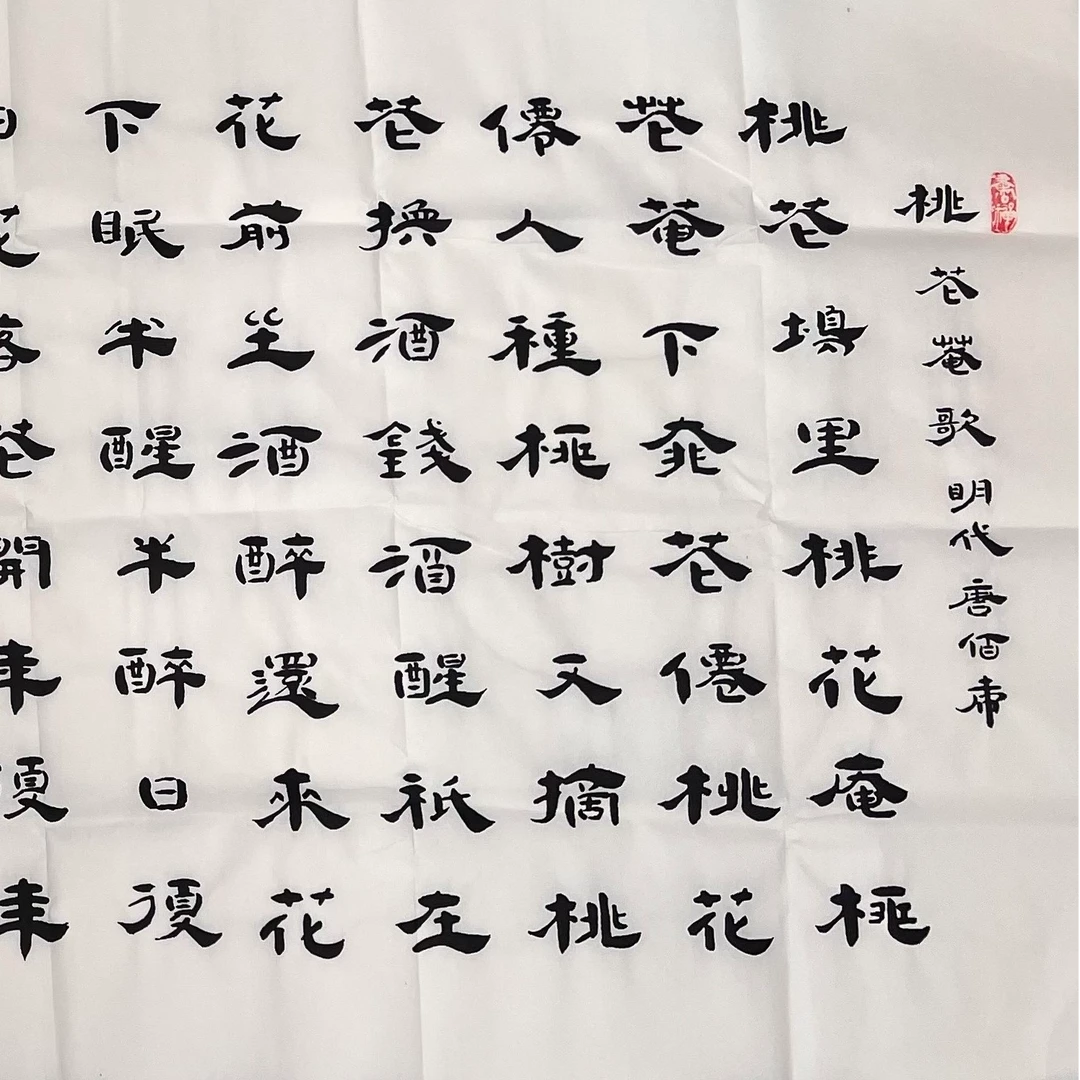 桃花菴歌明代唐佰虎
桃花塢里桃花庵桃
花菴下桃花僊桃花
僊人種桃樹又摘桃
花換酒錢酒醒祇在
花前坐酒醉還來花
下眠半醒半醉日復
日花落花開年復年